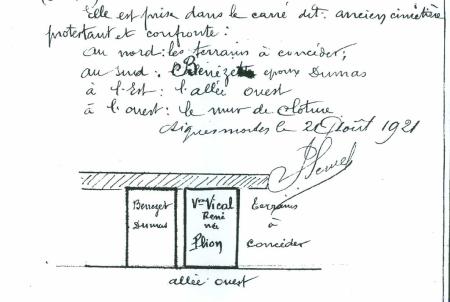 Elle est prise dans le carré dit: ancien cimetière
protestant et confronte:
au nord: les terrains à concéder;
au sud: Bénézet époux Dumas
à l'Est: l'allée ouest
à l'ouest: le mur de clôture
Aiguesmortes le 20 Août 1921
Benezet
Dumas
Vve Vical
René
née
Plion
terrains
à
concéder
allée ouest